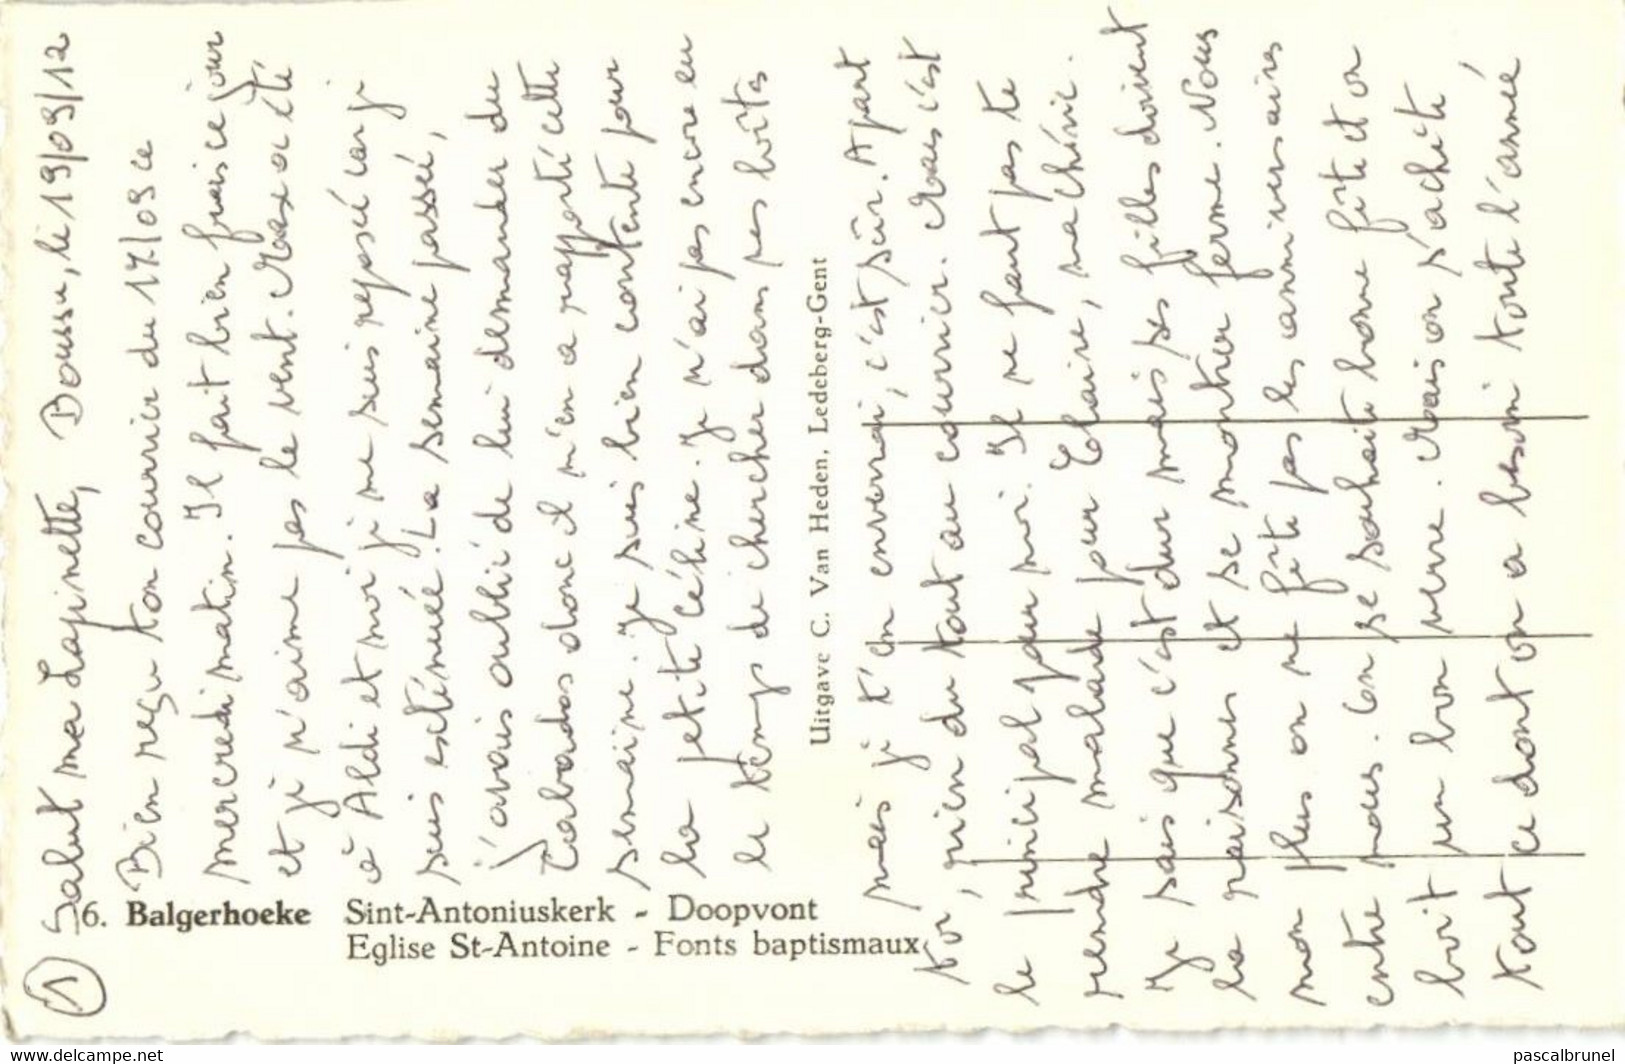 ①
Salut ma Lapinette, Boussu, le 19/09/12
Bien reçu ton courrier du 17/09 ce
mercredi matin. Il fait bien frais ce jour
et je n'aime pas le vent. Maxa été
à Aldi et moi je me suis reposée car je
suis exténuée. La semaine passée,
j'avais oublié de lui demander du
donc il m'en a rapporté cette
semaine. Je suis bien contente pour
la petite Céline. Je n'ai pas encore eu
le temps de chercher dans mes boîtes
mais je t'en enverrai, c'est sûr. A part
toi, rien du tout au courrier. Mais c'est
le principal pour moi. Il ne faut pas te
rendre malade pour Claire, ma chérie.
Je sais que c'est dur mais ses filles doivent
la raisonner et se montrer ferme. Nous
non plus on ne fête pas les anniversaires
entre nous. On se souhaite bonne fête et on
boit un bon verre. Mais on s'achète
tout ce dont on a besoin toute l'année
6. Balgerhoeke Sint-Antoniuskerk - Doopvont
Eglise St-Antoine - Fonts baptismaux
Uitgave C. Van Heden, Ledeberg-Gent
www.delcampe.net
pascalbrunel